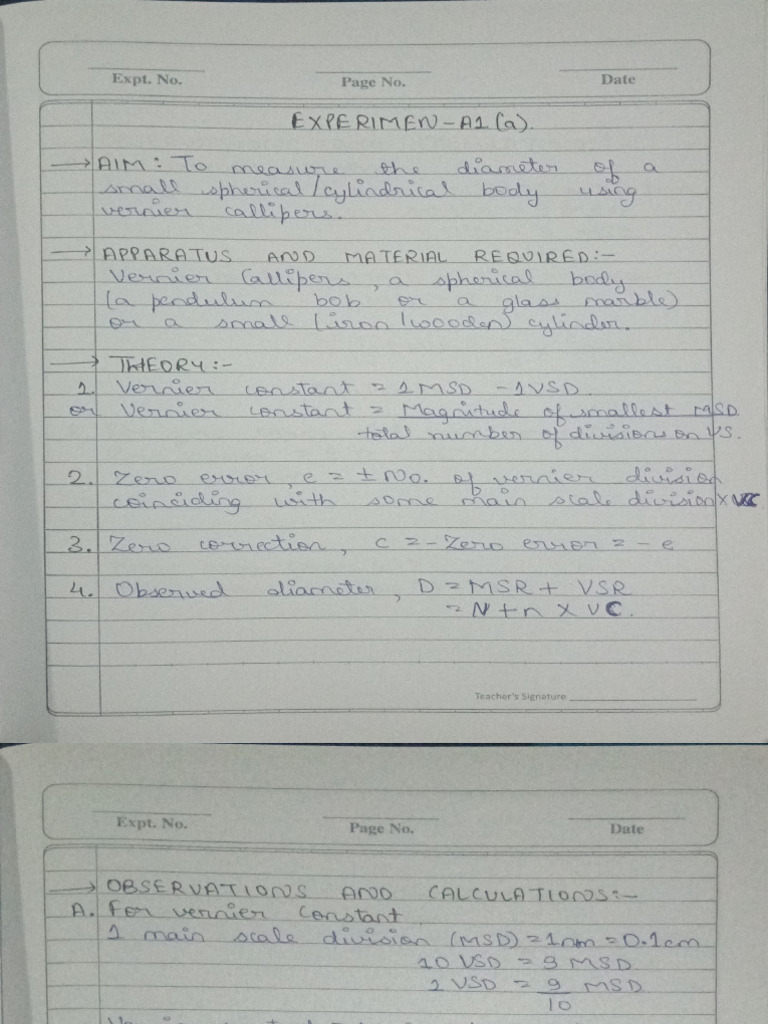 Expt. No. Page No. Date
EXPERIMEN-A1(a).
→ AIM: To measure the diameter of a
small spherical/cylindrical body using
vernier callipers.
→ APPARATUS AND MATERIAL REQUIRED:-
Vernier Callipers, a spherical body
(a pendulum bob or a glass marble)
or a small (iron/wooden) cylinder.
→ THEORY:-
1. Vernier constant = 1MSD - 1VSD.
or Vernier constant = Magnitude of smallest MSD
total number of divisions on VS.
2. Zero error, e = ± No. of vernier division
coinciding with some main scale division x VC
3. Zero correction, c = -Zero error = -e
4. Observed diameter, D = MSR + VSR
= N + n x VC.
Teacher's Signature
Expt. No. Page No. Date
→ OBSERVATIONS AND CALCULATIONS:-
A. For vernier constant
1 main scale division (MSD) = 1nm = 0.1cm
10 VSD = 9 MSD
1 VSD = 9 MSD
10